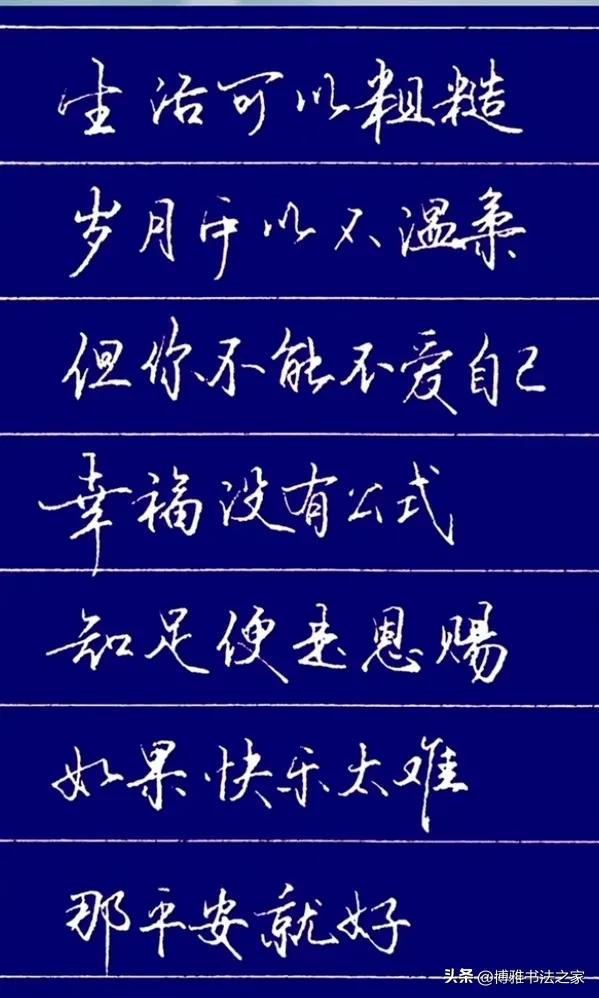 生活可以粗糙
岁月可以不温柔
但你不能不爱自己
幸福没有公式
知足便是恩赐
如果快乐太难
那平安就好
头条 @博雅书法之家